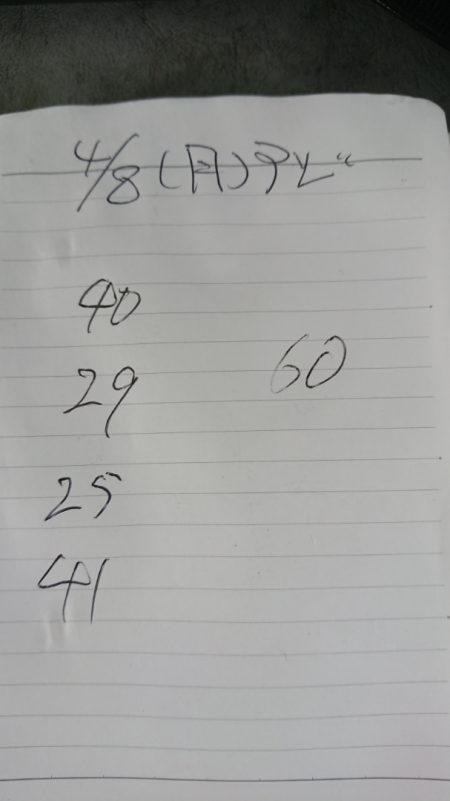 4/8(月)テレ"
40
29
60
25
41